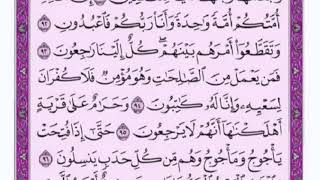 أُمَّتُكُمْ أُمَّةً وَٰحِدَةً وَأَنَا۠ رَبُّكُمْ فَٱعْبُدُونِ ٩٢
وَتَقَطَّعُوٓا۟ أَمْرَهُم بَيْنَهُمْ ۖ كُلٌّ إِلَيْنَا رَٰجِعُونَ ٩٣
فَمَن يَعْمَلْ مِنَ ٱلصَّٰلِحَٰتِ وَهُوَ مُؤْمِنٌ فَلَا كُفْرَانَ
لِسَعْيِهِۦ وَإِنَّا لَهُۥ كَٰتِبُونَ ٩٤ وَحَرَٰمٌ عَلَىٰ قَرْيَةٍ
أَهْلَكْنَٰهَآ أَنَّهُمْ لَا يَرْجِعُونَ ٩٥ حَتَّىٰٓ إِذَا فُتِحَتْ
يَأْجُوجُ وَمَأْجُوجُ وَهُم مِّن كُلِّ حَدَبٍ يَنسِلُونَ ٩٦